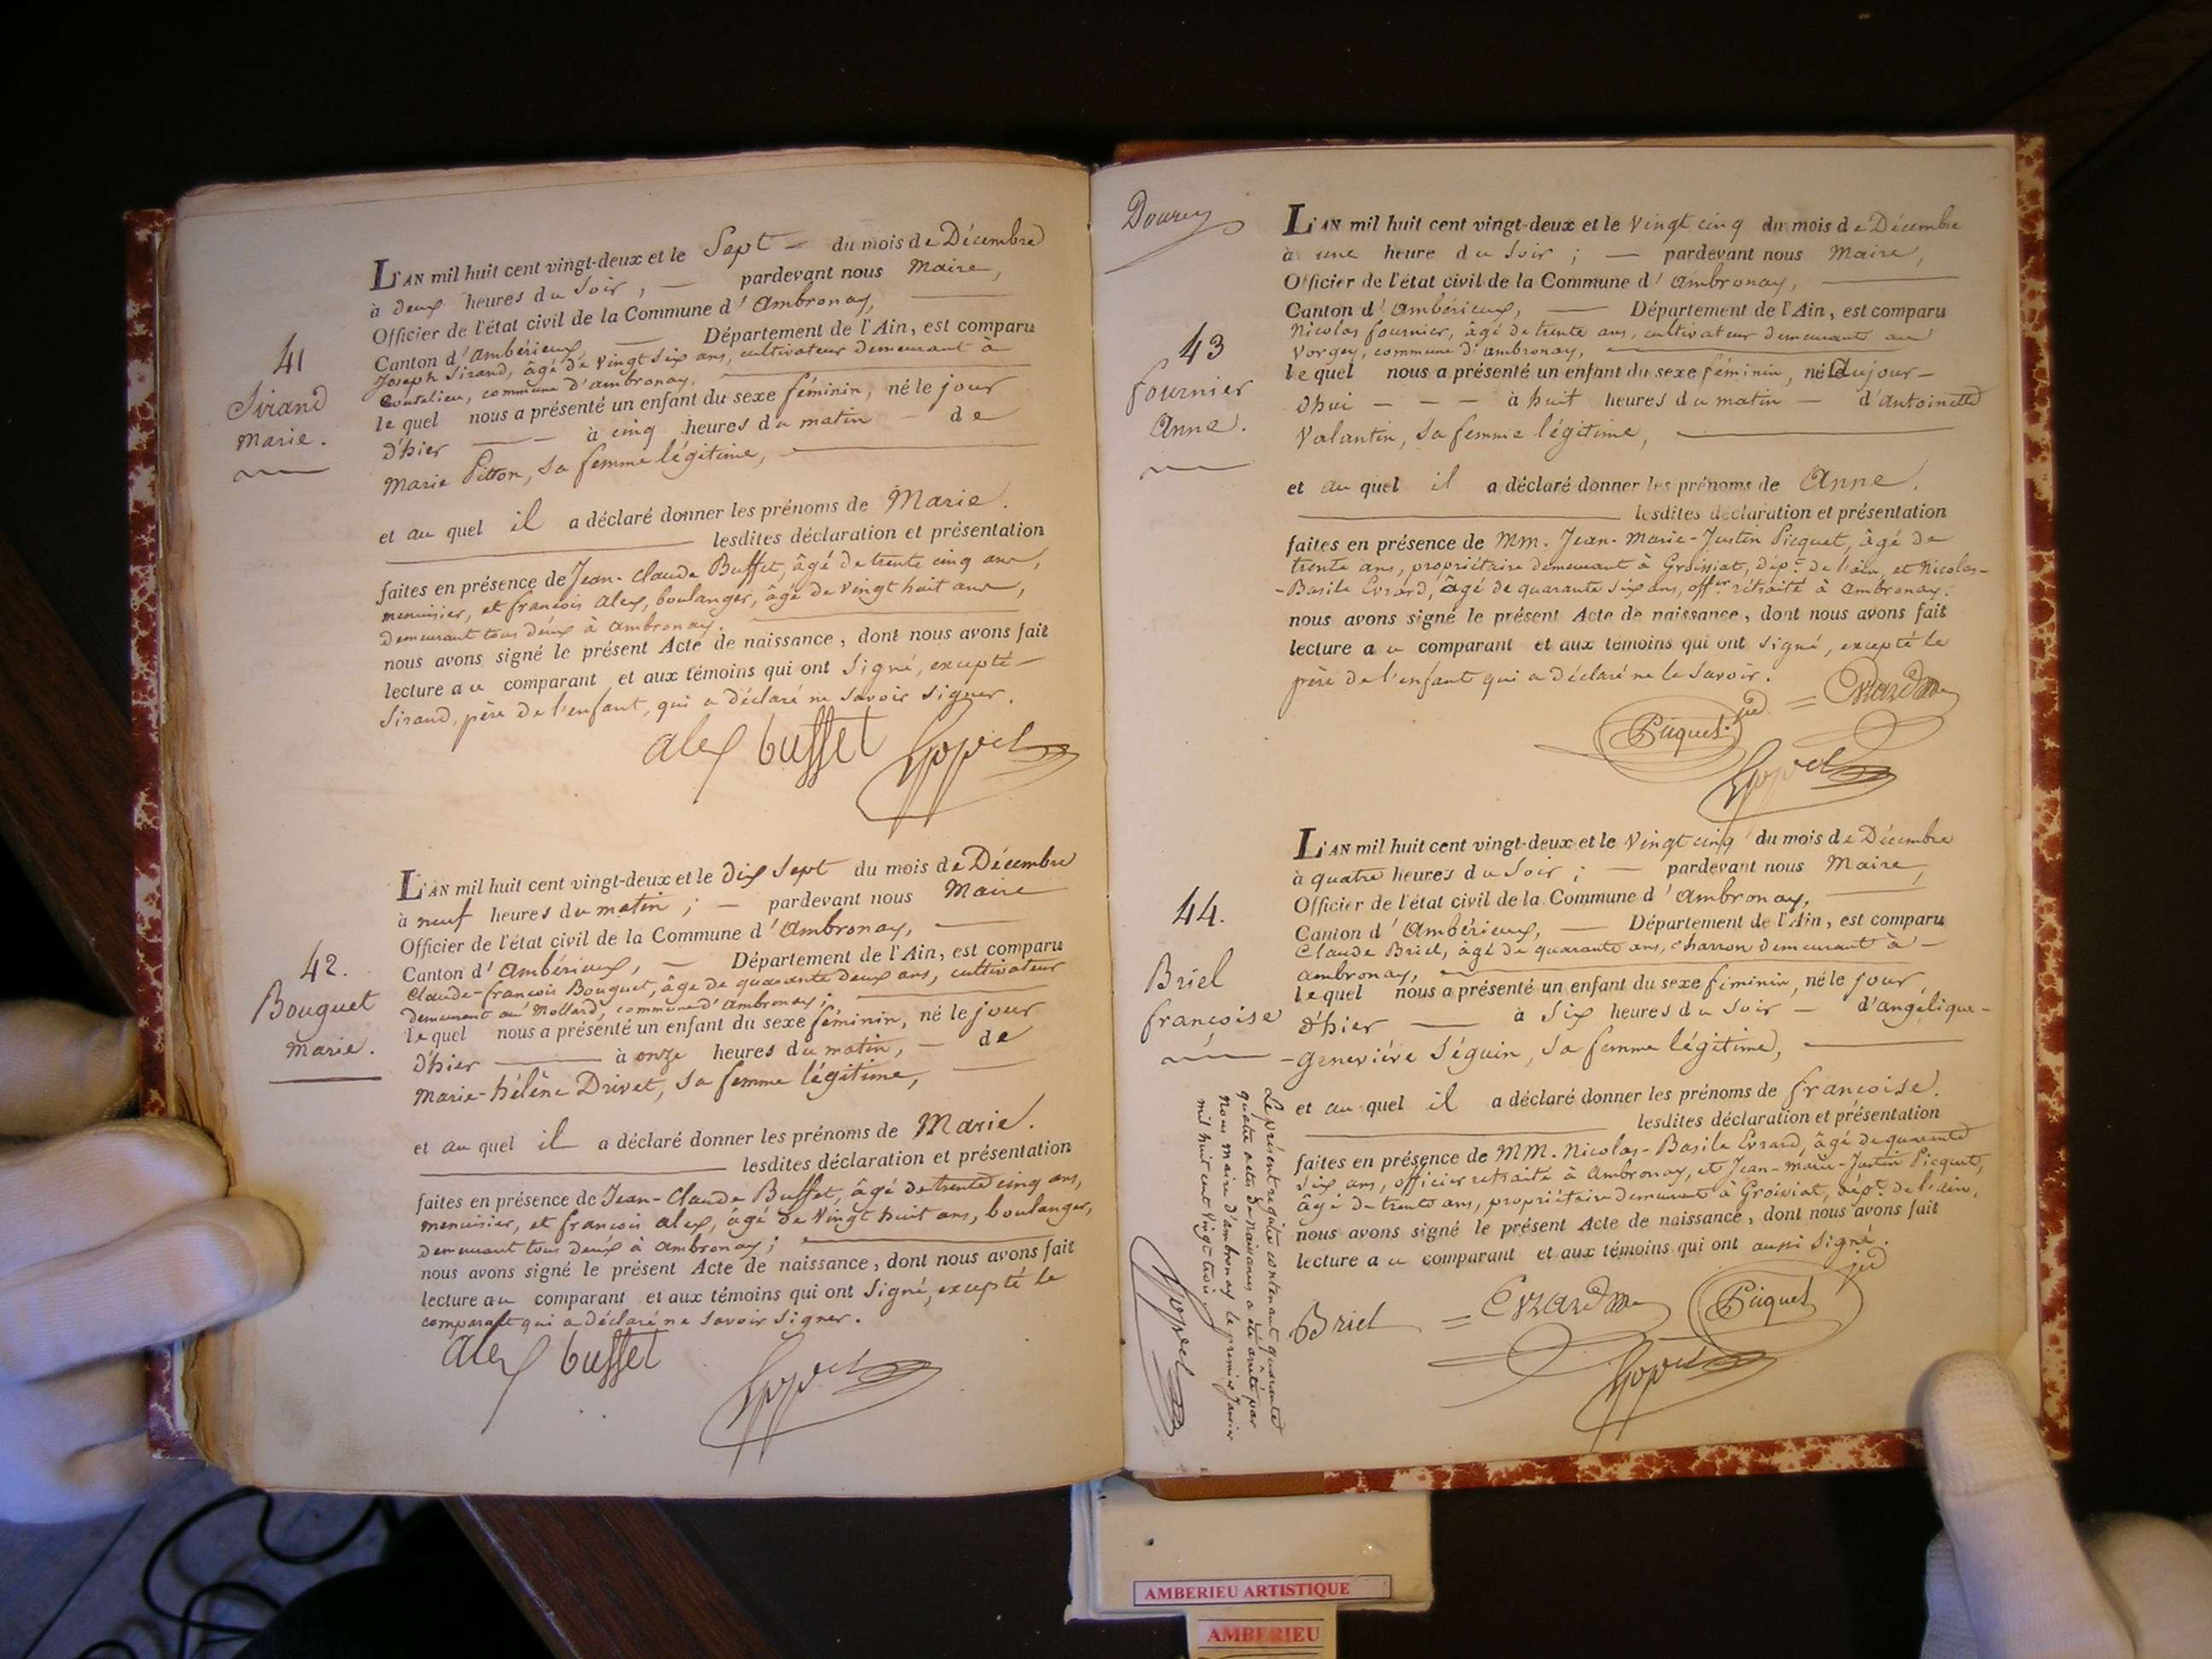 41
Sirand
Marie.
L'AN mil huit cent vingt-deux et le Sept du mois de Décembre
à deux heures du Soir, pardevant nous Maire,
Officier de l'état civil de la Commune d'Ambronay,
Canton d'Ambérieux, Département de l'Ain, est comparu
Joseph Sirand, âgé de vingt six ans, cultivateur demeurant à
Coutelieu, commune d'ambronay.
lequel nous a présenté un enfant du sexe féminin, né le jour
d'hier à cinq heures du matin de
Marie Pitton, sa femme légitime,
et au quel il a déclaré donner les prénoms de Marie.
lesdites déclaration et présentation
faites en présence de Jean-Claude Buffet, âgé de trente cinq ans,
menuisier, et françois alex, boulanger, âgé de vingt huit ans,
demeurant tous deux à ambronay.
nous avons signé le présent Acte de naissance, dont nous avons fait
lecture au comparant et aux témoins qui ont signé, excepté
Sirand, père de l'enfant, qui a déclaré ne savoir signer.
alex buffet
42.
Bouguet
Marie.
L'AN mil huit cent vingt-deux et le dix sept du mois de Décembre
à neuf heures du matin ; pardevant nous Maire
Officier de l'état civil de la Commune d'Ambronay,
Canton d'Ambérieux, Département de l'Ain, est comparu
Claude-françois Bouguet, âgé de quarante deux ans, cultivateur
demeurant au Mollard, commune d'Ambronay ;
lequel nous a présenté un enfant du sexe féminin, né le jour
d'hier à onze heures du matin, de
Marie-hélène Drivet, sa femme légitime,
et au quel il a déclaré donner les prénoms de Marie.
lesdites déclaration et présentation
faites en présence de Jean-Claude Buffet, âgé de trente cinq ans,
menuisier, et françois alex, âgé de vingt huit ans, boulanger,
demeurant tous deux à ambronay ;
nous avons signé le présent Acte de naissance, dont nous avons fait
lecture au comparant et aux témoins qui ont signé, excepté le
comparant qui a déclaré ne savoir signer.
alex buffet
Dourey
43
fournier
Anne.
L'AN mil huit cent vingt-deux et le vingt cinq du mois de Décembre
à une heure du soir ; pardevant nous Maire,
Officier de l'état civil de la Commune d'ambronay,
Canton d'Ambérieux, Département de l'Ain, est comparu
Nicolas fournier, âgé de trente ans, cultivateur demeurant au
Vorgey, commune d'ambronay,
lequel nous a présenté un enfant du sexe féminin, né aujour-
d'hui à huit heures du matin d'antoinette
Valantin, sa femme légitime,
et au quel il a déclaré donner les prénoms de Anne.
lesdites déclaration et présentation
faites en présence de MM. Jean-Marie-Justin Picquet, âgé de
trente ans, propriétaire demeurant à Groissiat, dépt. de l'ain, et Nicolas-
-Basile Evrard, âgé de quarante six ans, offer rétraité à ambronay.
nous avons signé le présent Acte de naissance, dont nous avons fait
lecture au comparant et aux témoins qui ont signé, excepté le
père de l'enfant qui a déclaré ne le savoir.
Picquet Evrard
44.
Briel
françoise
L'AN mil huit cent vingt-deux et le vingt cinq du mois de Décembre
à quatre heures du Soir ; pardevant nous Maire,
Officier de l'état civil de la Commune d'ambronay,
Canton d'Ambérieux, Département de l'Ain, est comparu
Claude Briel, âgé de quarante ans, charron demeurant à
ambronay,
lequel nous a présenté un enfant du sexe féminin, né le jour
d'hier à six heures du soir d'angélique-
-geneviève Séguin, sa femme légitime,
et au quel il a déclaré donner les prénoms de françoise.
lesdites déclaration et présentation
faites en présence de MM. Nicolas-Basile Evrard, âgé de quarante
six ans, officier retraité à Ambronay, et Jean-marie-Justin Picquet,
âgé de trente ans, propriétaire demeurant à Groissiat, dépt. de l'ain,
nous avons signé le présent Acte de naissance, dont nous avons fait
lecture au comparant et aux témoins qui ont aussi signé.
Briel Evrard Picquet
Le présent registre contenant quarante
quatre actes de naissances a été arrêté par
nous maire d'ambronay le premier Janvier
mil huit cent vingt trois
AMBERIEU ARTISTIQUE
AMBERIEU